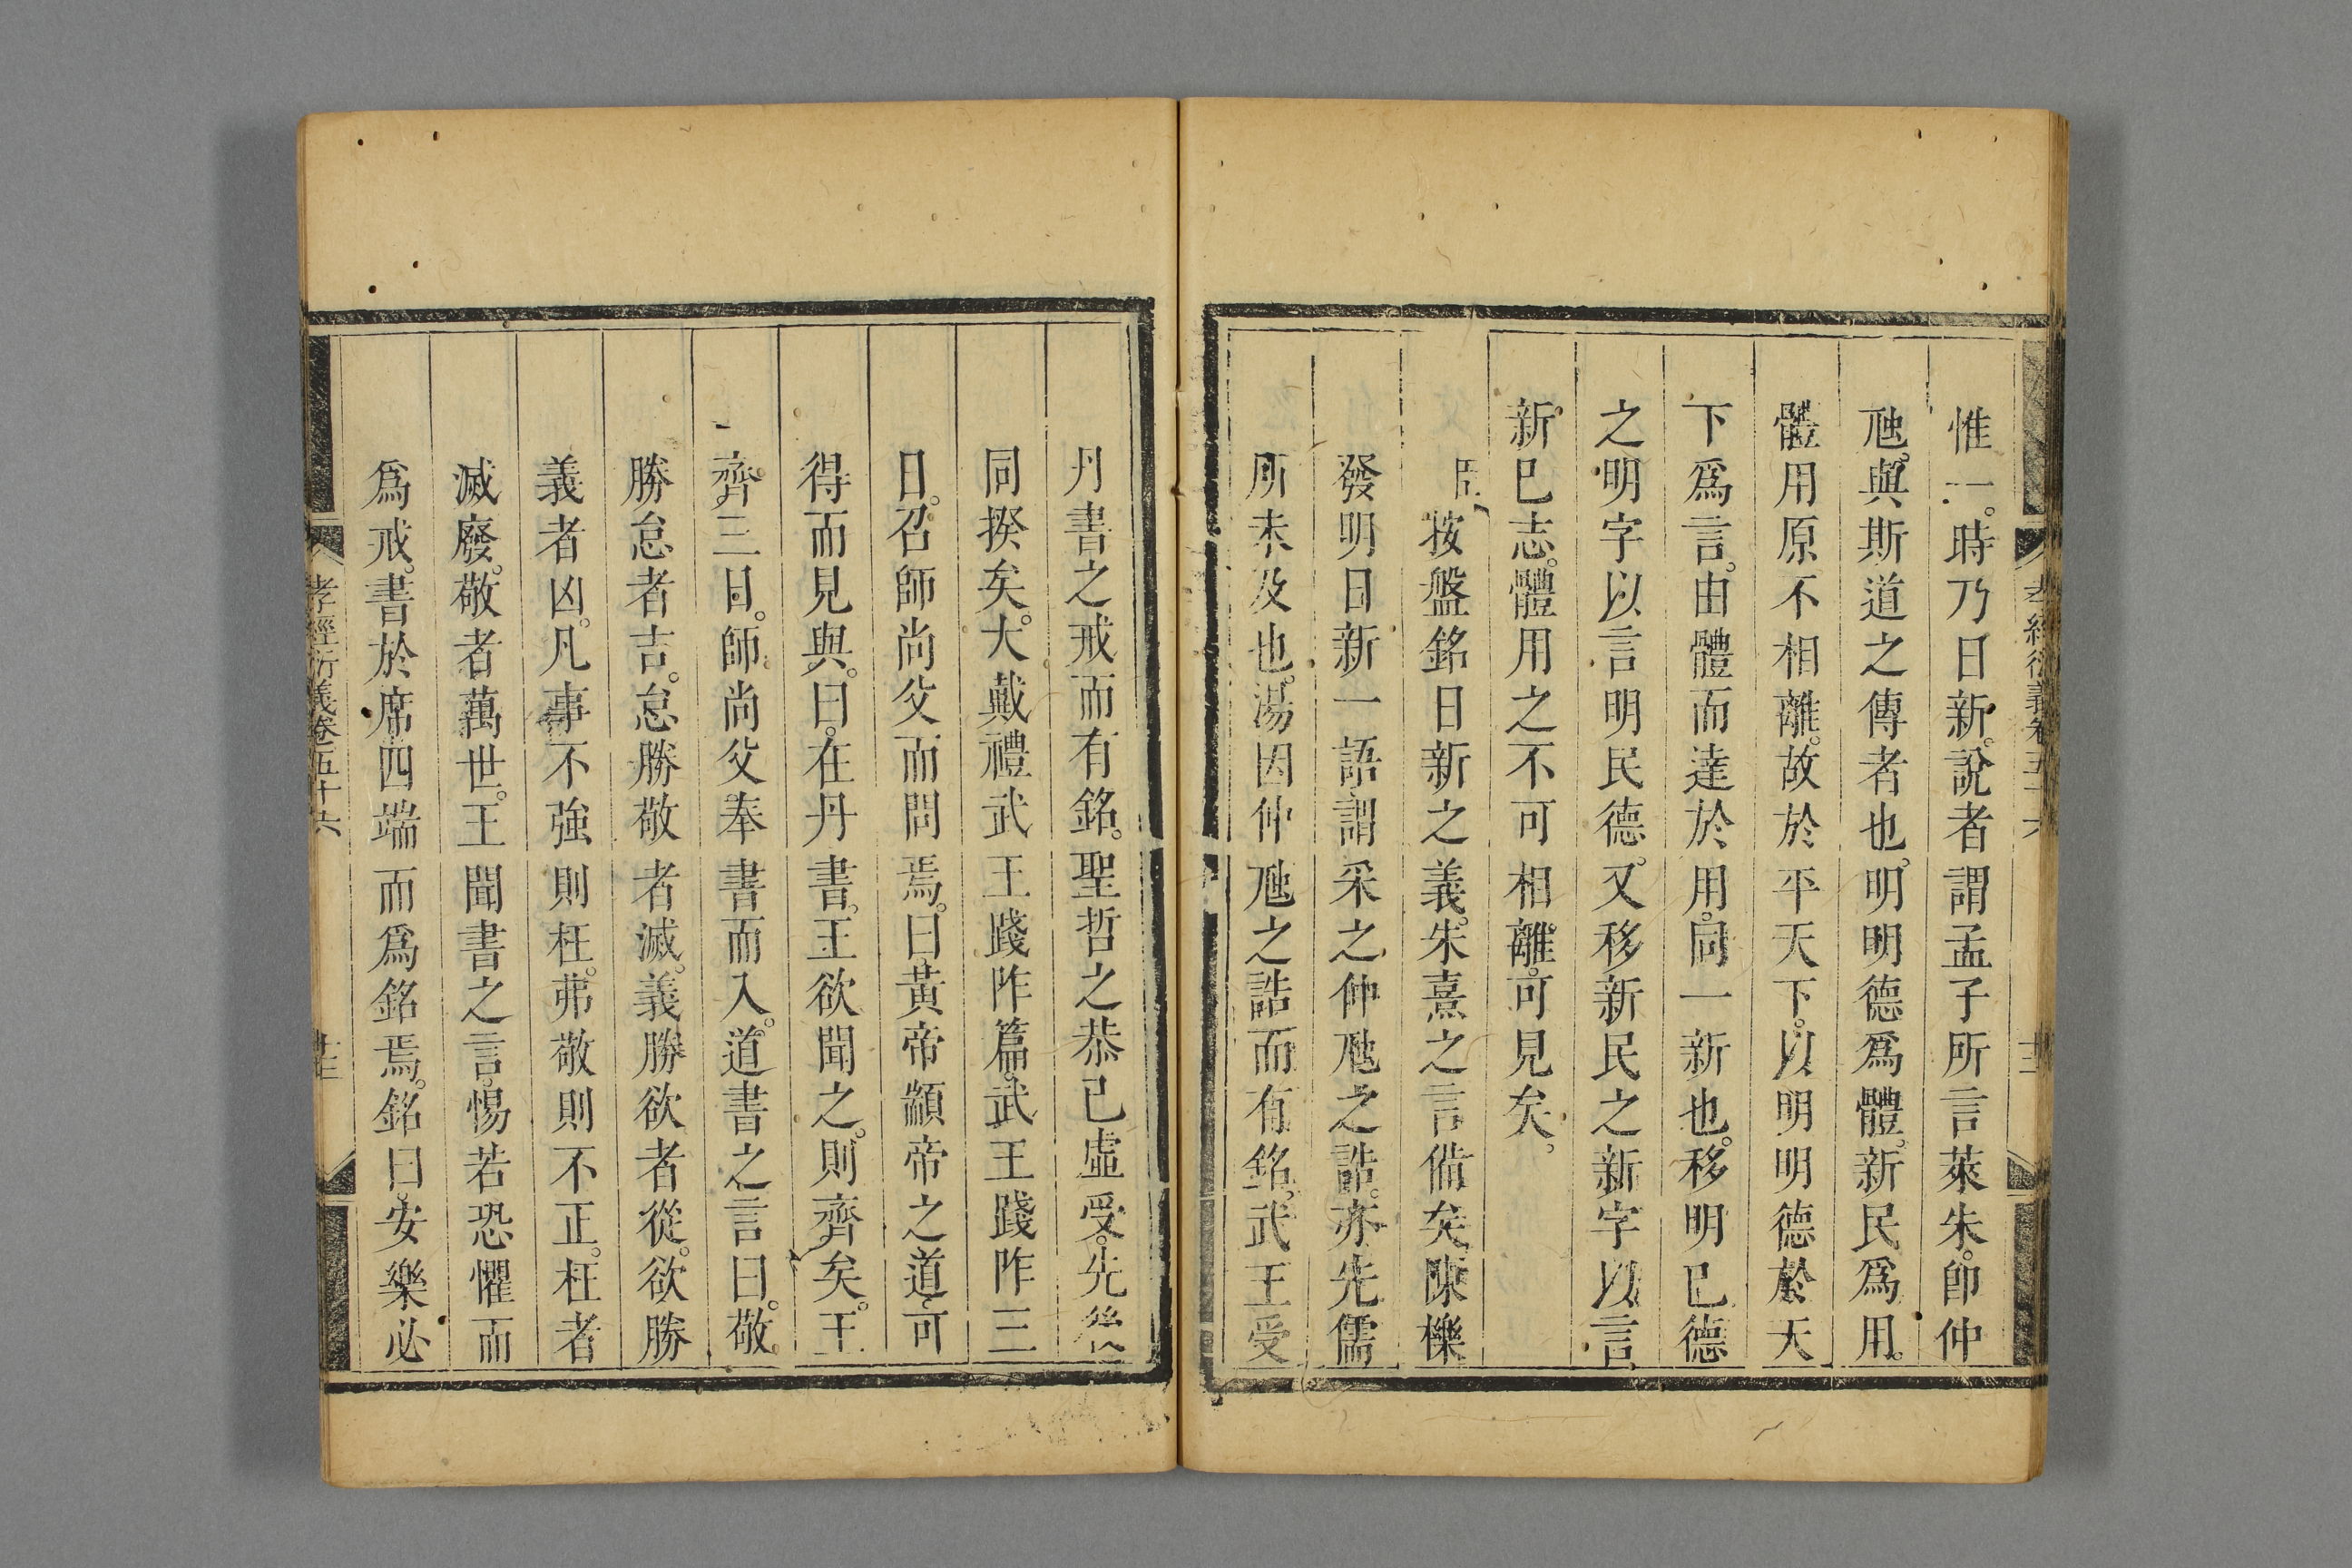 惟一。時乃日新。說者謂孟子所言萊朱。卽仲
虺。與斯道之傳者也。明明德爲體。新民爲用。
體用原不相離。故於平天下。以明明德於天
下爲言。由體而達於用。同一新也。移明已德
之明字以言明民德。又移新民之新字以言
新已志。體用之不可相離。可見矣。
臣按盤銘日新之義。朱熹之言備矣。陳櫟
發明日新一語。謂采之仲虺之誥。亦先儒
所未及也。湯因仲虺之誥而有銘。武王受
丹書之戒而有銘。聖哲之恭己虛受。先後
同揆矣。大戴禮武王踐阼篇。武王踐阼三
日。召師尚父而問焉。曰。黃帝顓帝之道。可
得而見與。曰。在丹書。王欲聞之。則齊矣。王
齊三日。師尚父奉書而入。道書之言曰。敬
勝怠者吉。怠勝敬者滅。義勝欲者從。欲勝
義者凶。凡事不強則枉。弗敬則不正。枉者
滅廢。敬者萬世。王聞書之言。惕若恐懼而
爲戒。書於席四端而爲銘焉。銘曰。安樂必
孝經衍義卷五十六